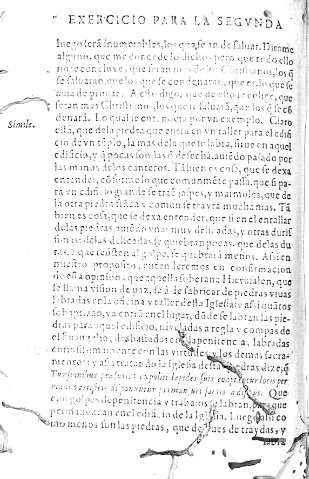 EXERCICIO PARA LA SEGVNDA
luego será inumerables, los que se an de saluar. Dirame
alguno, que me concede lo dicho: pero que todo ello
no se concluye, que seran mas los Christianos, los q̃
se saluaran, que los que se condenaran, que es lo que se
auia de prouar. A esto digo, que de ello se colige, que
seran mas Christianos, los que se saluarã, que los q̃ se cõ
denarã. Lo qual se entē por vn exemplo. Claro
Simile.
está, que de la piedra que entra en vn taller para el edifi
cio de vn tēplo, la mas della que se labra, sirue en aquel
edificio, y q̃ pocas son las q̃ se desechã, auiēdo passado por
las manos de los canteros. Tābien es cosa, que se dexa
entender, cõforme lo que comunmēte passa, que si pa-
ra en edificio grande se traē jaspes, y marmoles, que de
la otra piedra tosca y comun se trayra mucha mas. Tā
bien es cosa, que se dexa entender, que si en el entallar
de las piedras, auiēdo vnas muy delicadas, y otras durís
simas de las delicadas se quiebran pocas, que de las du
ras, y que resistē al golpe, se quebrará menos. Assi en
nuestro proposito, ruteu leremos en confirmacion
desta opinion, que aquella soberana Hierusalen, que
se llama vision de paz, se à de fabricar de piedras viuas
labradas en la oficina y taller desta Iglesia: assi quãtos
se baptizan, va entrã en el lugar, dõde se labran las pie
dras para aquel edificio, niueladas a regla y compas de
el Euangelio, desbastadas con la penitencia, labradas
curiosamante con las virtudes, y los demas sacra-
mentos: y assi tratando la Iglesia destas piedras dize, q̃
Tunsionibus, pressuris expoliti lapides suis coaptentur locis per
manus artificis disponuntur permansuri sacris ædificijs. Que
con golpes de penitencia y trabajos se labran, para que
permanezcan en el edificio de la Iglesia. Luego assi co
mo menos son las piedras, que despues de traydas, y
labra